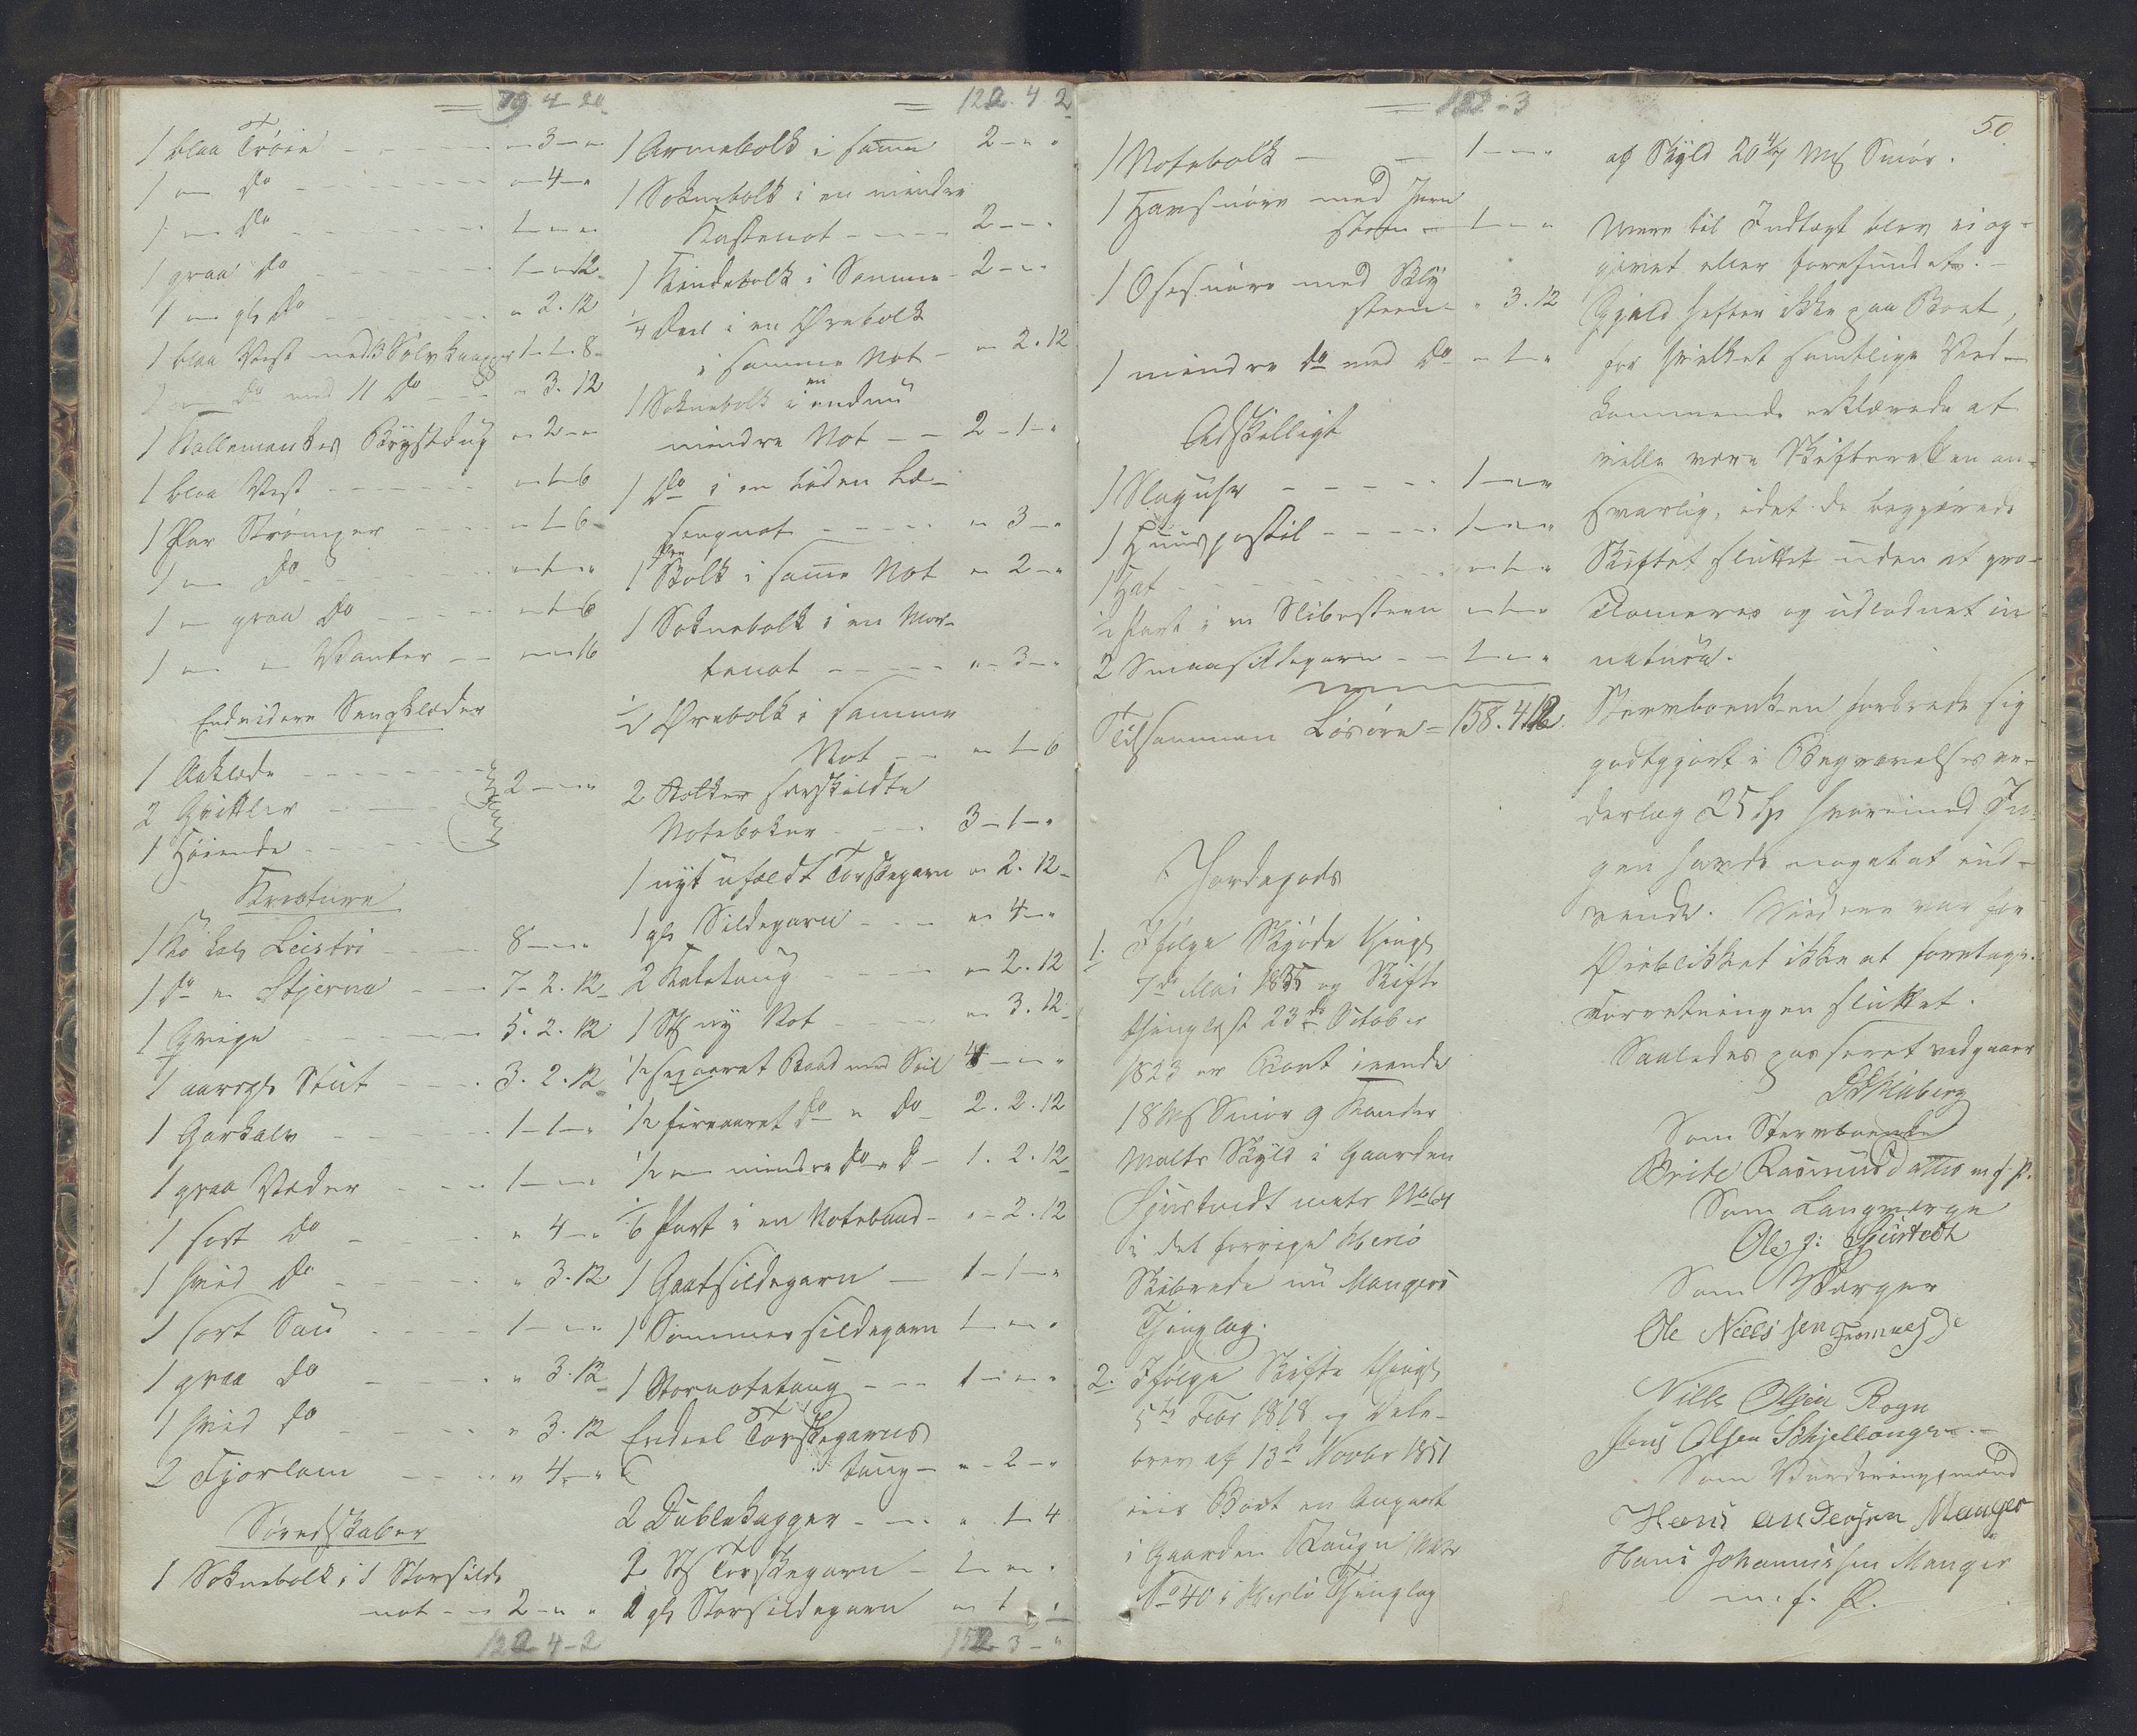 79. 4 - 20
1 blaa Trøie - - - - - " - 3 - "
1 " do - - - - - " - 4 - "
1 " do - - - - - 1 - " - "
1 graa do - - - - - 1 - " - 12
1 " gl. do - - - - - " 2. 12
1 blaa Vest med Sølvknapper 1 - 1 - 8
do med 11 do - - " 3. 12
1 Kallemankes Brystdug " - 2 - "
1 blaa Vest - - - - " - 1 - 6
1 Par Strømper - - - " - 1 - 6
1 " do - - - - " - 1 - "
1 " graa do - - - " - 1 - 6
1 " " Vanter - - " - " - 16
Endvidere Sengklæder
1 Aaklæde - - - - -
2 Grittler - - - - 2 - " - "
1 Høiende - - - -
Kreature
1 Ko kal. Leistri - - - 8 - " - "
1 do " Stjerna - - - 7 - 2. 12
1 Qvige - - - - 5. 2. 12
1 aargl. Stut - - - 3. 2. 12
1 Gorkalv - - - - 1 - 1 - "
1 graa Væder - - - 1 - " - "
1 sort do - - - " 4 - "
1 hvid do - - - " 3. 12
1 sort Sau - - - 1 - " - "
1 graa do - - - " 3. 12
1 hvid do - - - " 3. 12
2 Fjorlam - - - " 4 - "
Søredskaber
1 Soknebolk i 1 Storsilde
not - - 2 - " - "
122 - 4 - 2
122. 4 2
1 Armebolk i samme 2 - " - "
1 Soknebolk i en mindre
Kastenot - - - - 2 - " - "
1 Kindebolk i Samme - 2 - " - "
1/4 Deel i en Ørebolk
i samme Not - " 2. 12
1 Soknebolk i en endnu
mindre Not - - 2 - 1 - "
1 do i en liden Læ-
sengnot - - - - " 3 - "
1 Bolk i samme Not " 2 - "
1 Soknebolk i en Mor-
tenot - - - - " - 3 - "
1/2 Ørebolk i samme
Not - - " 1 - 6
2 Bolker særskildte
Notebolker - - - 3 - 1 - "
1 nyt ufældt Torskegarn " 2. 12
1 gl. Sildegarn - - - " 4 - "
2 Kaletoug - - - - " 2. 12
1 St ny Not - - - " 3. 12
1/2 sexaaret Baad med Seil 4 - " - "
1/2 fireaaret do " do 2. 2. 12
1/2 " mindre do " d - 1. 2. 12
1/6 Part i en Notebaad - " - 2. 12
1 Gaatsildegarn - 1 - 1 - "
1 Sommersildegarn 1 - " - "
1 Stornotetoug - - - 1 - " - "
Endeel Torskegarns
toug - " - 2 - "
2 Dublekagger - - " 1 - 4
2 St Torskegarn - 1 - " - "
2 gl. Storsildegarn " 1 "
152 - 3 - "
152 - 3
1 Notebolk - - 1 - " - "
1 Havsnøre med Jern
steen - 1 - " - "
1 Osesnøre med Bly
steen - " 3. 12
1 mindre do med do " 1 - "
Adskilligt
1 Slaguhr - - - - 1 - " - "
1 Huuspostil - - - - 1 - " - "
1 Hat - - - - " - 1 - "
1/2 Part i en Slibesteen " - 1 - "
2 Smaasildegarn - - 1 - " - "
Tilsammen Løsøre = 158. 4. 12
Jordegods
1. Ifølge Skjøde thingl.
7de Mai 1855 og Skifte
thinglæst 23de October
1823 er Boet eiende
18 Mk Smør 9 Kander
Malts Skyld i Gaarden
Hjurtvedt matr No 64
i det forrige Herlø
Skibrede nu Mangers
Thinglag.
2. Ifølge Skifte thingl.
5te Febr 1818 og Dele-
brev af 13de Novbr 1851
eier Boet en Anpart
i Gaarden Raugn Matr
No 40 i Herlø Thinglag
50
af Skyld 20 4/7 Mk Smør.
Mere til Indtægt blev ei op-
givet eller forefundet. -
Gjæld hefter ikke paa Boet,
for hvilket samtlige Ved-
kommende erklærede at
ville være Skifteretten an-
svarlig, idet de begjærede
Skiftet sluttet uden at pro-
clameres og udlodnet in
natura.
Sterboenken forbeholdt sig
godtgjort i Begravelses ve-
derlag 25 Sp hvorimod In-
gen havde noget at ind-
vende. Videre var for
Øieblikket ikke at foretage.
Forretningen sluttet.
Saaledes passeret vedgaaer
Som Sterboenke
Brite Rasmusdatter m. f. P.
Som Laugværge
Ole J: Hjurtedt
Som Værger
Ole Nielssen
Nills Olsen Rogn
Jens Olsen Schjellanger
Som Vurderingsmænd
Hans Andersen Manger
Hans Johannessen Manger
m. f. P.